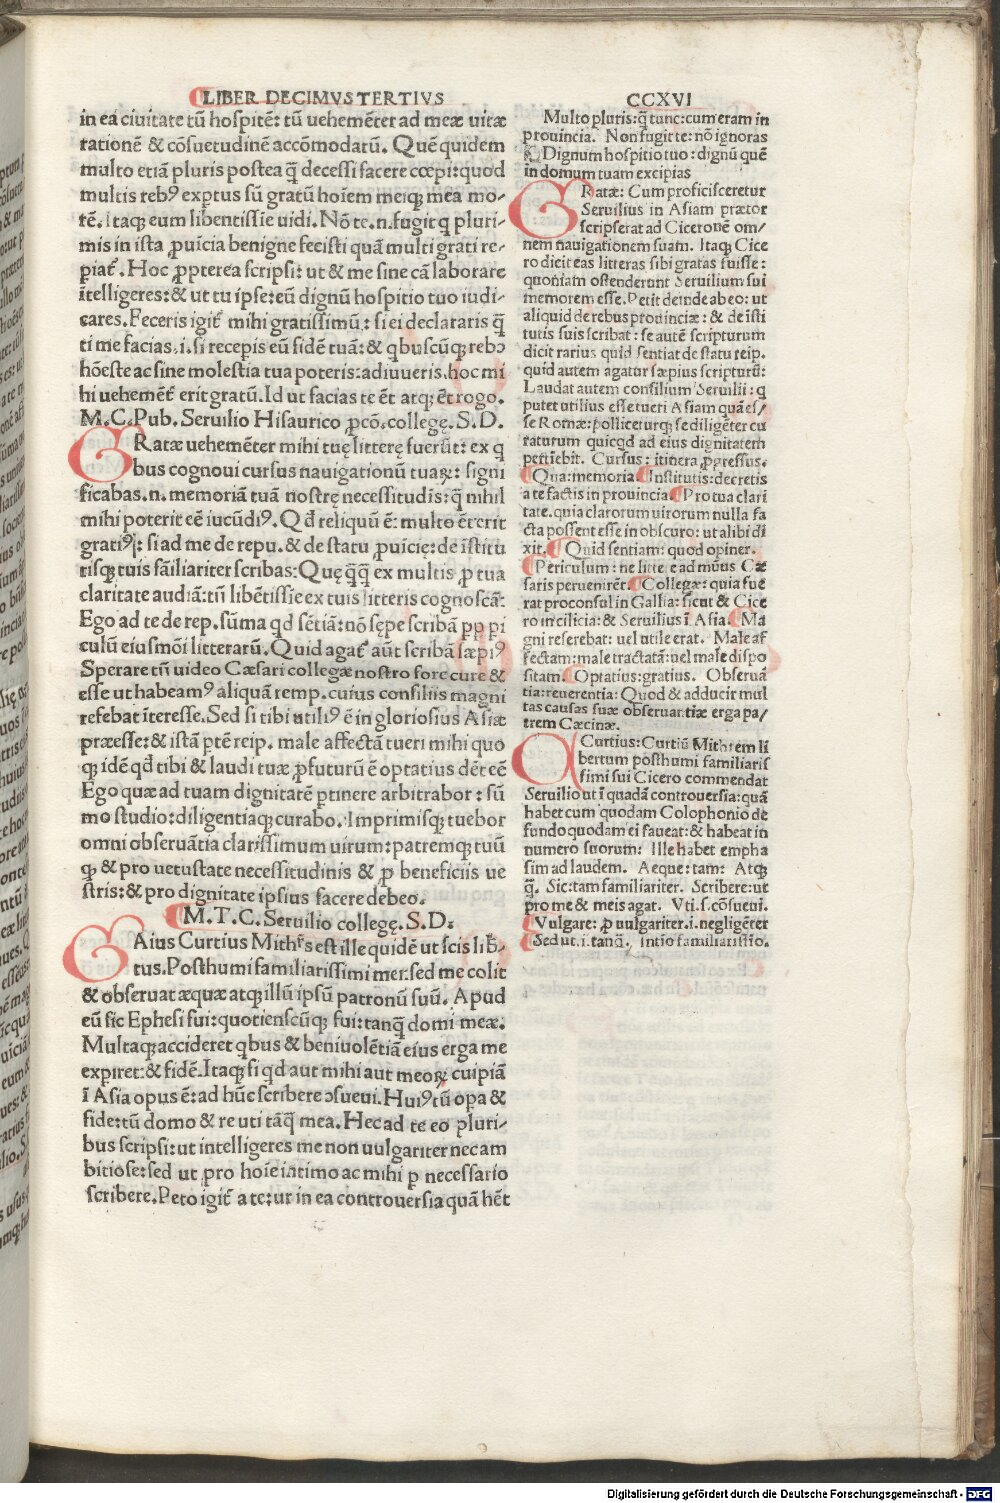 LIBER DECIMVS TERTIVS
CCXVI
in ea ciuitate tũ hospitẽ: tũ uehemẽter ad meæ uitæ
rationẽ & cõsuetudinẽ accõmodatũ. Quẽ quidem
multo etiã pluris postea q̃ decessi facere cœpi: quod
multis rebꝰ exptus sũ gratũ hoiem meiqꝫ mea mo⸗
rẽ. Itaqꝫ eum libentissĩe uidi. Nõ te .n. fugit q̃ pluri⸗
mis in ista ꝓuicia benigne fecisti quã multi grati re⸗
ꝑiat̃. Hoc ꝓpterea scripsi: ut & me sine cã laborare
ĩtelligeres: & ut tu ipse: eũ dignũ hospitio tuo iudi⸗
cares. Feceris igit̃ mihi gratissimũ: si ei declararis q̃
ti me facias .i. si recepis eũ fidẽ tuã: & qbuscũqꝫ rebꝰ
hõeste ac sine molestia tua poteris: adiuueris. hoc mi
hi uehemẽt̃ erit gratũ. Id ut facias te ẽt atqꝫ ẽt rogo.
M.C. Pub. Seruilio Hisaurico ꝓcõ. collegę. S.D.
GRatæ uehemẽter mihi tuę litterę fuerũt: ex q
bus cognoui cursus nauigationũ tuaꝝ: signi
ficabas .n. memoriã tuã nostrę necessitudĩs: q̃ nihil
mihi poterit eẽ iucũdiꝰ. Qđ reliquũ ẽ: multo ẽt erit
gratiꝰ: si ad me de repu. & de statu ꝓuicię: de ĩstitu
tisqꝫ tuis fãiliariter scribas: Quę q̃q̃ ex multis ꝓ tua
claritate audiã: tũ libẽtissĩe ex tuis litteris cognoscã:
Ego ad te de rep. sũma qd sẽtiã: nõ sępe scribã ꝓp ꝑi
culũ eiusmõi litterarũ. Quid agat̃ aũt scribã sæpiꝰ
Sperare tñ uideo Cæsari collegæ nostro fore curę &
esse ut habeamꝰ aliquã remp. cuius consiliis magni
referebat ĩteresse. Sed si tibi utiliꝰ ẽ in gloriosius Asiæ
præesse: & istã ptẽ reip. male affectã tueri mihi quo
qꝫ idẽ qđ tibi & laudi tuæ ꝓfuturũ ẽ optatius dẽt eẽ
Ego quæ ad tuam dignitatẽ ꝑtinere arbitrabor: sũ
mo studio: diligentiaqꝫ curabo. Imprimisqꝫ tuebor
omni obseruãtia clarissimum uirum: patremqꝫ tuũ
qꝫ & pro uetustate necessitudinis & ꝓ beneficiis ue
stris: & pro dignitate ipsius facere debeo.
M.T.C. Seruilio collegę. S.D.
GAius Curtius Mithr̃s est ille quidẽ ut scis lib̃⸗
tus. Posthumi familiarissimi mei: sed me colit
& obseruat æquæ atqꝫ illũ ipsũ patronũ suũ. Apud
eũ sic Ephesi fui: quotienscũqꝫ fui: tanq̃ domi meæ.
Multaqꝫ accideret qbus & beniuolẽtiã eius erga me
expiret: & fidẽ. Itaqꝫ si qd aut mihi aut meoꝝ cuipiã
ĩ Asia opus ẽ: ad hũc scribere ɔsueui. Huiꝰ tũ opa &
fide: tũ domo & re uti tãq̃ mea. Hec ad te eo pluri⸗
bus scripsi: ut intelligeres me non uulgariter nec am
bitiose: sed ut pro hoĩe intimo ac mihi ꝑ necessario
scribere. Peto igit̃ a te: ut in ea controuersia quã hẽt
Multo pluris: q̃ tunc: cum eram in
prouincia. Non fugit te: nõ ignoras
Dignum hospitio tuo: dignũ quẽ
in domum tuam excipias
GRatæ: Cum proficisceretur
Seruilius in Asiam prætor
scripserat ad Ciceronẽ om⸗
nem nauigationem suam. Itaqꝫ Cice
ro dicit eas litteras sibi gratas fuisse:
quoniam ostenderunt Seruilium sui
memorem esse. Petit deinde ab eo: ut
aliquid de rebus prouinciæ: & de ĩsti
tutis suis scribat: se autẽ scripturum
dicit rarius quid sentiat de statu reip.
quid autem agatur sæpius scripturũ:
Laudat autem consilium Seruilii: q
putet utilius esse tueri Asiam quã es⸗
se Romæ: polliceturqꝫ se diligẽter cu
raturum quicqd ad eius dignitatem
pertĩebit. Cursus: itinera ꝓgressus.
Qua: memoria Institutis: decretis
a te factis in prouincia Pro tua clari
tate. quia clarorum uirorum nulla fa
cta possent esse in obscuro: ut alibi di
xit. Quid sentiam: quod opiner.
Periculum: ne litteræ ad mãus Cæ
saris peruenirẽt. Collegæ: quia fue
rat proconsul in Gallia: sicut & Cice
ro in cilicia: & Seruilius ĩ Asia. Ma
gni referebat: uel utile erat. Male af
fectam: male tractatã: uel male dispo
sitam. Optatius: gratius. Obseruã
tia: reuerentia: Quod & adducir mul
tas causas suæ obseruantiæ erga pa⸗
trem Cæcinæ.
CCurtius: Curtiũ Mithrem li
bertum posthumi familiaris
simi sui Cicero commendat
Seruilio ut ĩ quadã controuersia: quã
habet cum quodam Colophonio de
fundo quodam ei faueat: & habeat in
numero suorum: Ille habet empha
sim ad laudem. Aeque: tam: Atqꝫ
q̃. Sic: tam familiariter. Scribere: ut
pro me & meis agat. Vti .s. cõsueui.
Vulgare: ꝓ uulgariter .i. negligẽter
Sed ut .i. tanq̃. Intio familiaristio.
Digitalisierung gefördert durch die Deutsche Forschungsgemeinschaft - DFG